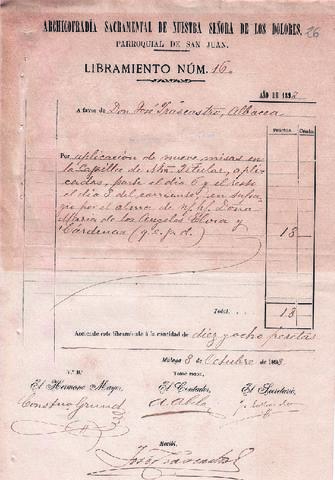 ARCHICOFRADÍA SACRAMENTAL DE NUESTRA SEÑORA DE LOS DOLORES. 26
PARROQUIAL DE SAN JUAN.
LIBRAMIENTO NÚM. 16.
AÑO DE 189
A favor de Don José Trascastro, Albacea
Pesetas Cents.
Por aplicacion de nueve misas en
la Capilla de Ntra Titular, apli
cadas, parte el dia 6 y el resto
el dia 8 del corriente, en sufra
gio por el alma de Doña
Maria de los Angeles Elvira y
Cárdenas (q.e.p.d.) 18
Total. 18
Asciende este libramiento á la cantidad de diez y ocho pesetas
Málaga 8 Octubre de 1893
V.º B.º
Tomé razón,
El Hermano Mayor, El Contador, El Secretario,
Constno Grund
Recibí,
José Trascastro